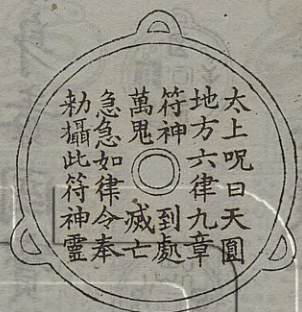 太上呪曰天圓
地方六律九章
符神到處
萬鬼滅亡
急急如律令奉
勅攝此符神靈